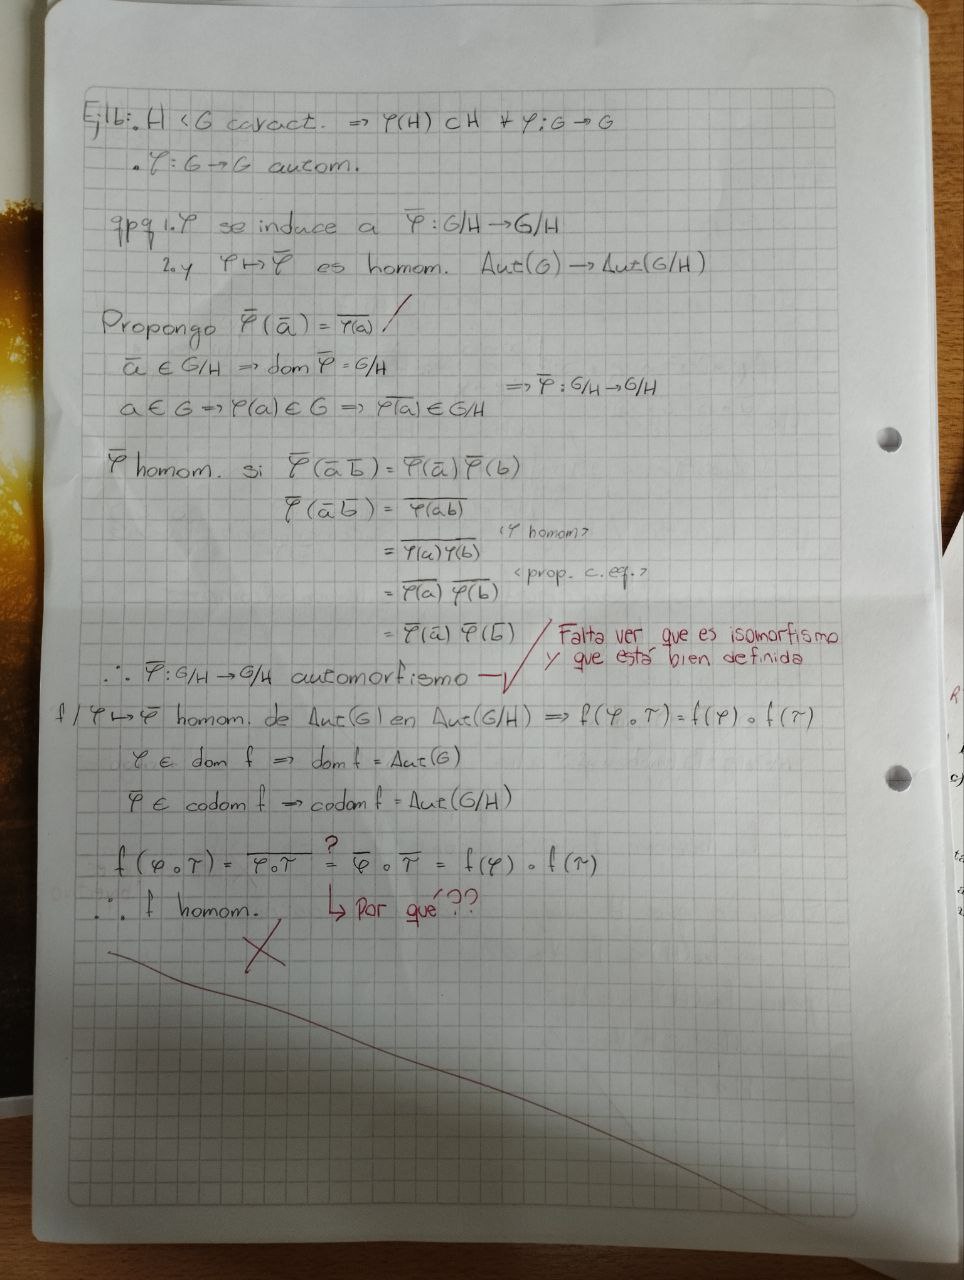 Ej 16: . H < G caract. ⇒ φ(H) ⊂ H ∀ φ: G → G
. φ: G → G autom.
qpq 1. φ se induce a φ̄ : G/H → G/H
2. y φ ↦ φ̄ es homom. Aut(G) → Aut(G/H)
Propongo φ̄(ā) = \overline{φ(a)}
ā ∈ G/H ⇒ dom φ̄ = G/H
⇒ φ̄ : G/H → G/H
a ∈ G ⇒ φ(a) ∈ G ⇒ \overline{φ(a)} ∈ G/H
φ̄ homom. si φ̄(ā b̄) = φ̄(ā) φ̄(b)
φ̄(ā b̄) = \overline{φ(ab)}
= \overline{φ(a)φ(b)} <φ homom>
= \overline{φ(a)} \overline{φ(b)} <prop. c. eq.>
= φ̄(ā) φ̄(b̄)
Falta ver que es isomorfismo
y que está bien definida
∴ φ̄ : G/H → G/H automorfismo
f / φ ↦ φ̄ homom. de Aut(G) en Aut(G/H) ⇒ f(φ ∘ τ) = f(φ) ∘ f(τ)
φ ∈ dom f ⇒ dom f = Aut(G)
φ̄ ∈ codom f ⇒ codom f = Aut(G/H)
?
f(φ ∘ τ) = \overline{φ ∘ τ} = φ̄ ∘ τ̄ = f(φ) ∘ f(τ)
∴ f homom. ↳ Por qué??